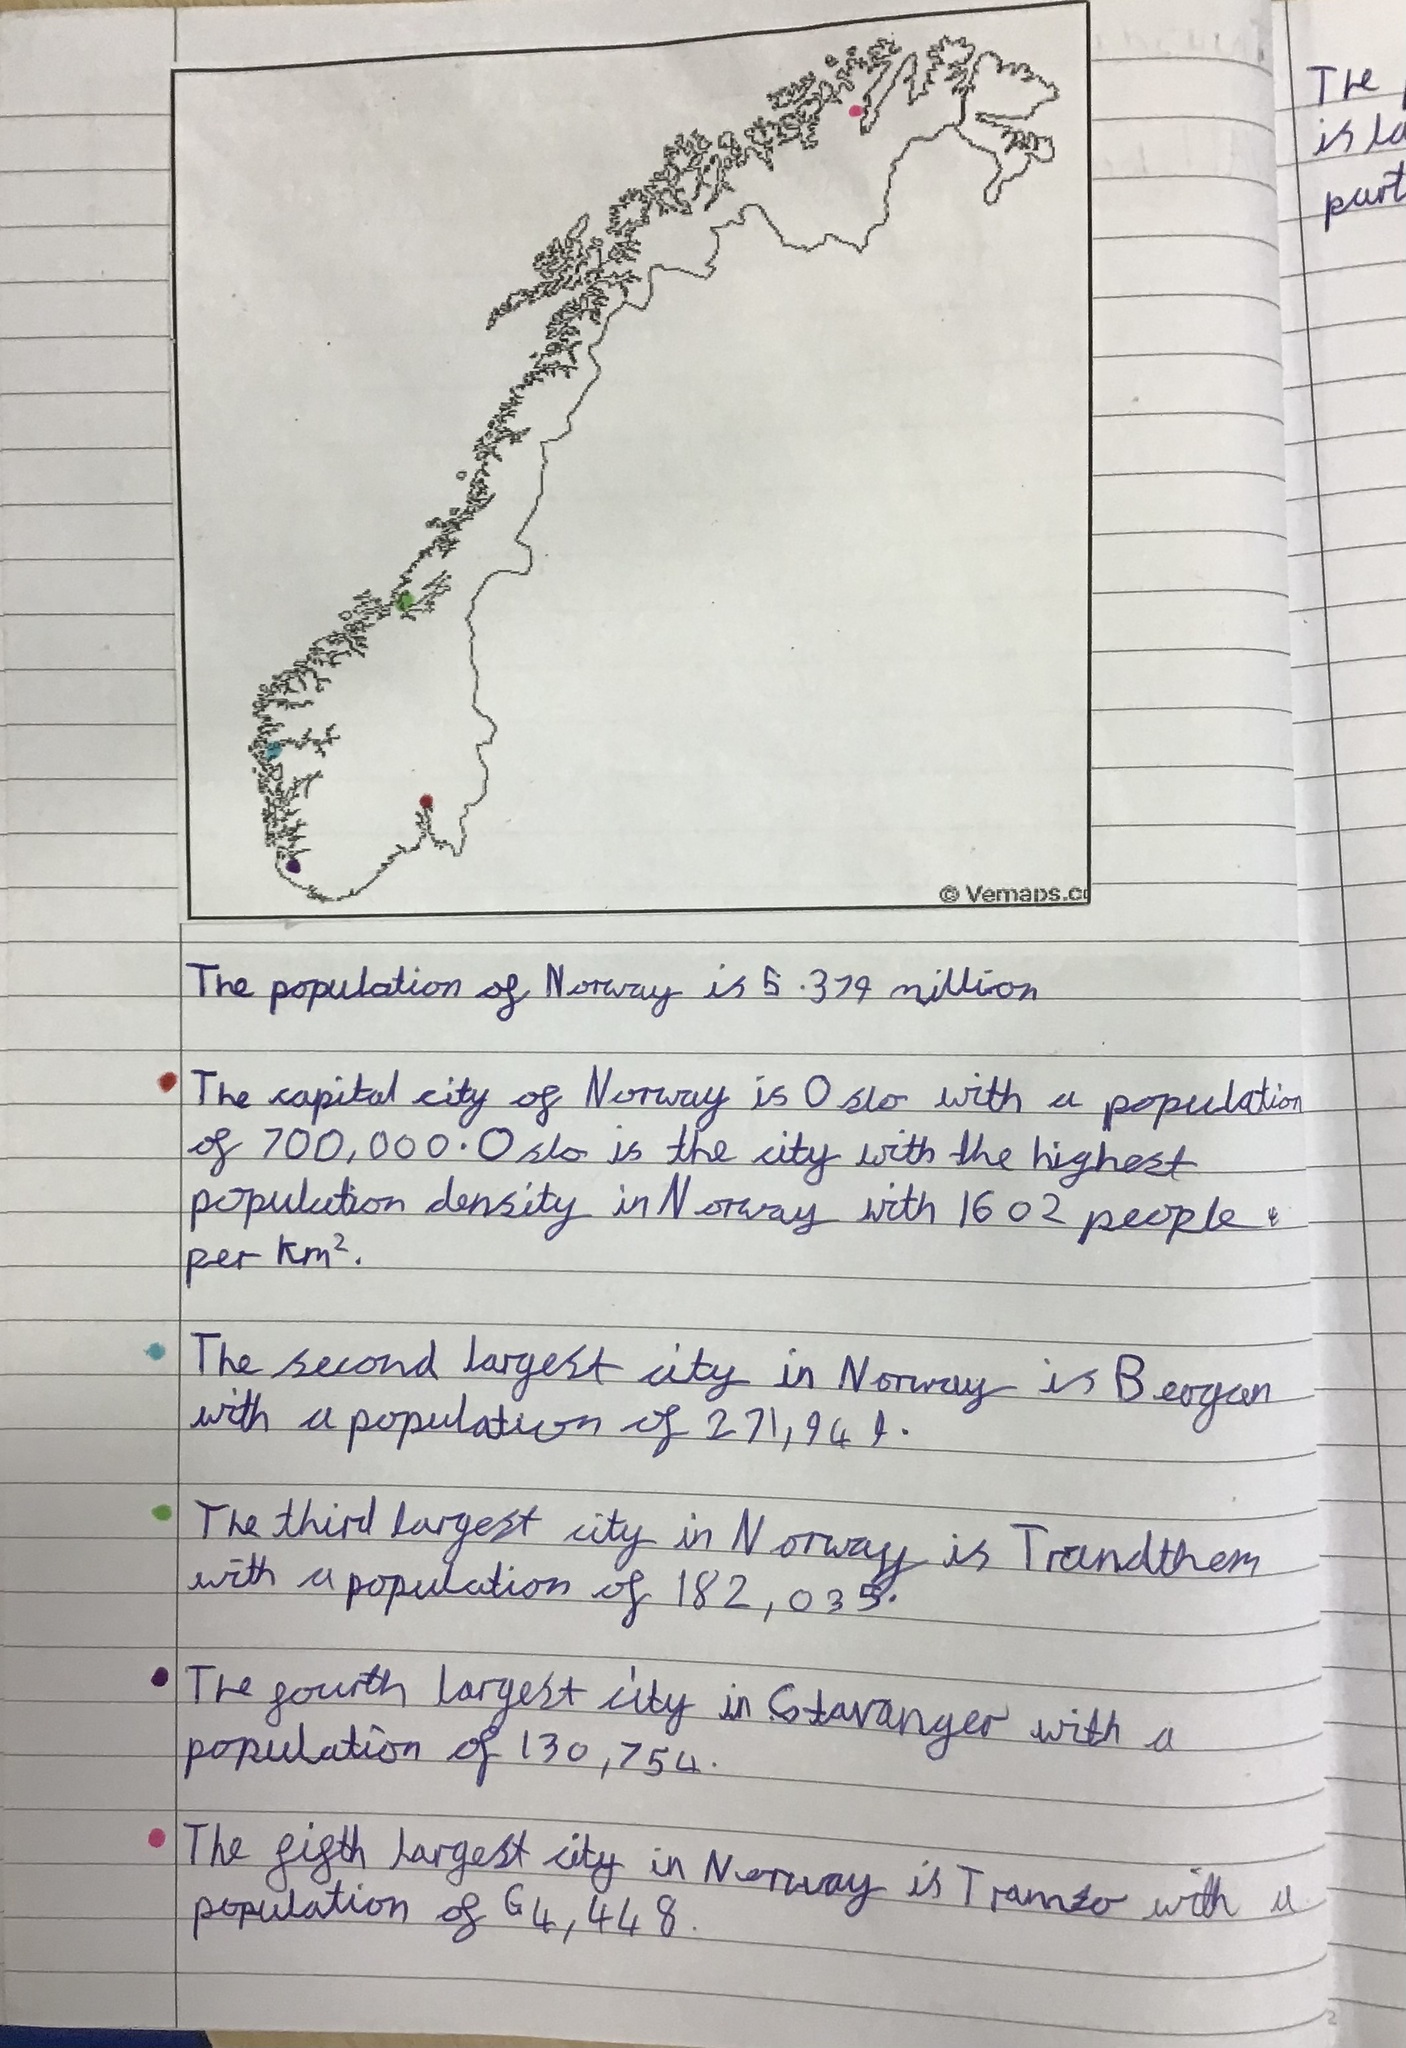 © Vemaps.co
The population of Norway is 5.379 million
The capital city of Norway is Oslo with a population
of 700,000. Oslo is the city with the highest
population density in Norway with 1602 people
per km².
The second largest city in Norway is Beogan
with a population of 271,949.
The third largest city in Norway is Trandthem
with a population of 182,035.
The fourth largest city in Stavanger with a
population of 130,754.
The fifth largest city in Norway is Tramso with a
population of 64,448.
The
is la
part